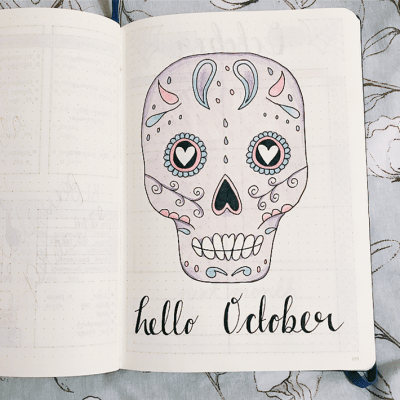 hello October